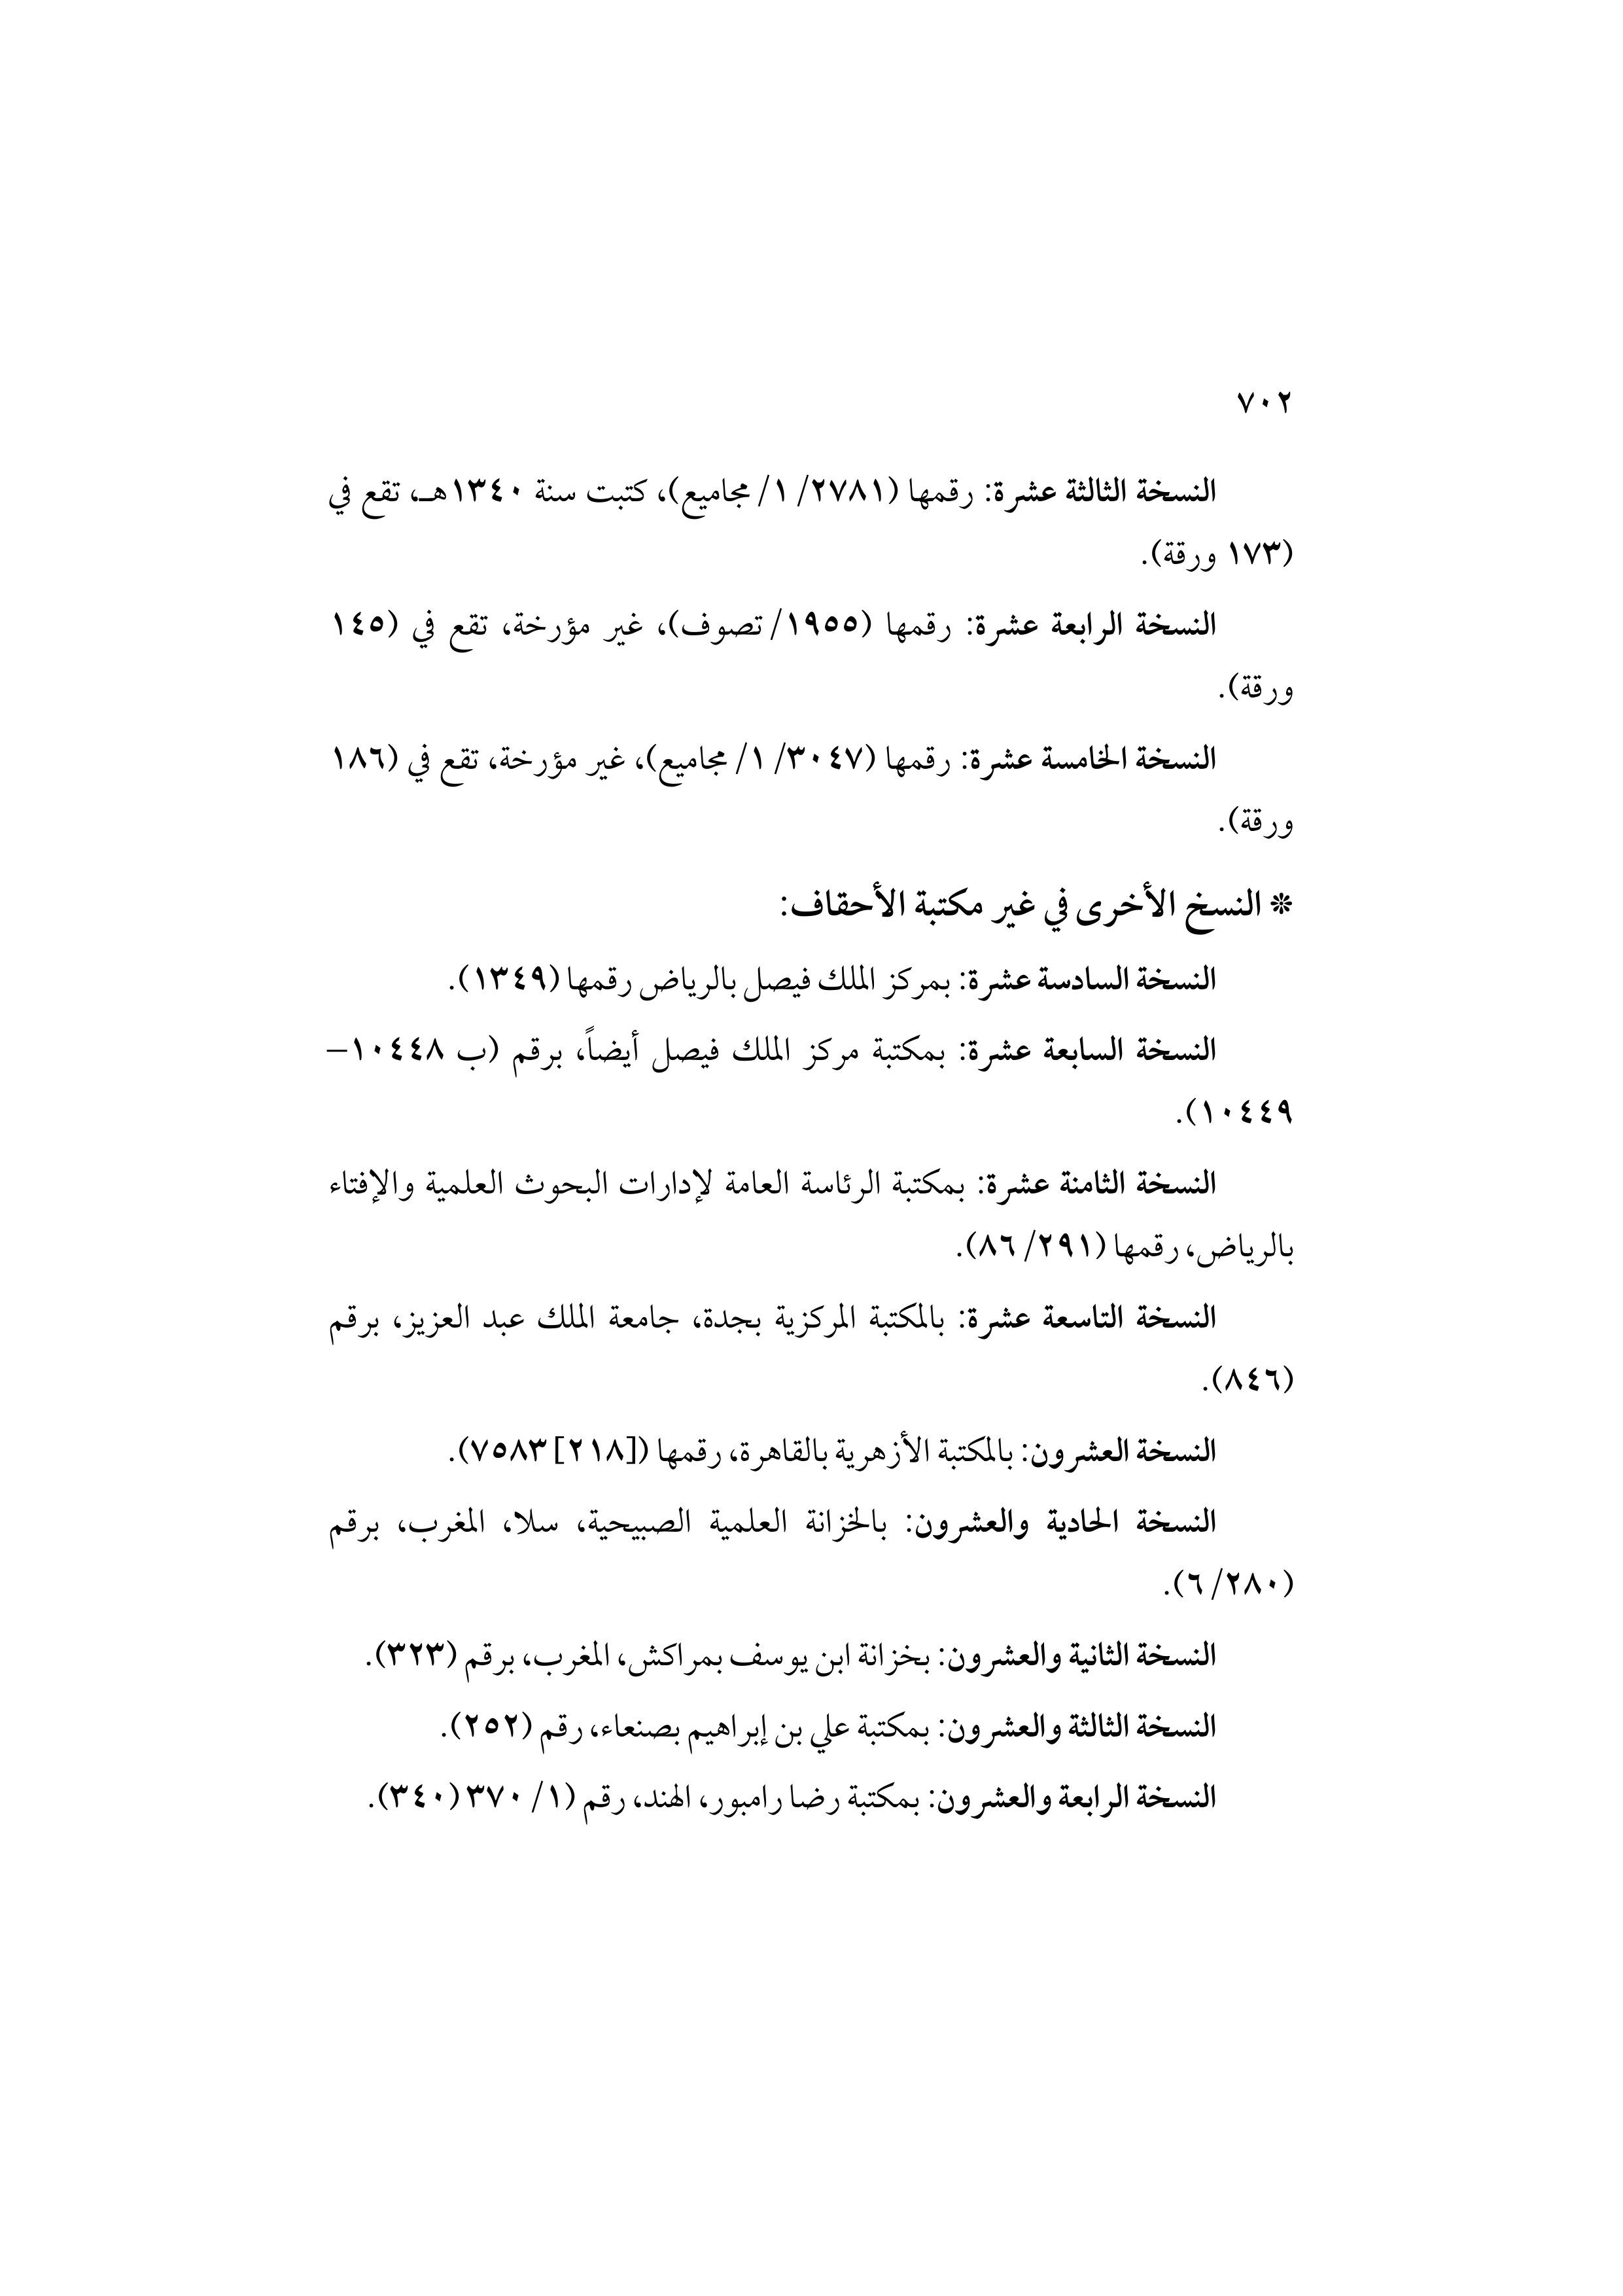 ٧٠٢
النسخة الثالثة عشرة: رقمها (٢٧٨١/ ١/ مجاميع)، كتبت سنة ١٣٤٠هـ، تقع في
(١٧٣ ورقة).
النسخة الرابعة عشرة: رقمها (١٩٥٥/ تصوف)، غير مؤرخة، تقع في (١٤٥
ورقة).
النسخة الخامسة عشرة: رقمها (٣٠٤٧/ ١/ مجاميع)، غير مؤرخة، تقع في (١٨٦
ورقة).
* النسخ الأخرى في غير مكتبة الأحقاف:
النسخة السادسة عشرة: بمركز الملك فيصل بالرياض رقمها (١٣٤٩).
النسخة السابعة عشرة: بمكتبة مركز الملك فيصل أيضاً، برقم (ب ١٠٤٤٨–
١٠٤٤٩).
النسخة الثامنة عشرة: بمكتبة الرئاسة العامة لإدارات البحوث العلمية والإفتاء
بالرياض، رقمها (٢٩١/ ٨٦).
النسخة التاسعة عشرة: بالمكتبة المركزية بجدة، جامعة الملك عبد العزيز، برقم
(٨٤٦).
النسخة العشرون: بالمكتبة الأزهرية بالقاهرة، رقمها ([٢١٨] ٧٥٨٣).
النسخة الحادية والعشرون: بالخزانة العلمية الصبيحية، سلا، المغرب، برقم
(٢٨٠/ ٦).
النسخة الثانية والعشرون: بخزانة ابن يوسف بمراكش، المغرب، برقم (٣٢٣).
النسخة الثالثة والعشرون: بمكتبة علي بن إبراهيم بصنعاء، رقم (٢٥٢).
النسخة الرابعة والعشرون: بمكتبة رضا رامبور، الهند، رقم (١/ ٣٧٠ (٣٤٠).